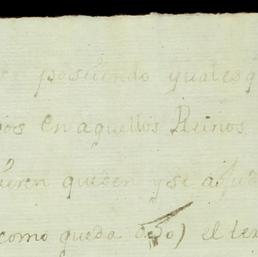 se posiiendo quales q
os en aquellos Reinos
eren queden y se aju
como queda dho) el te